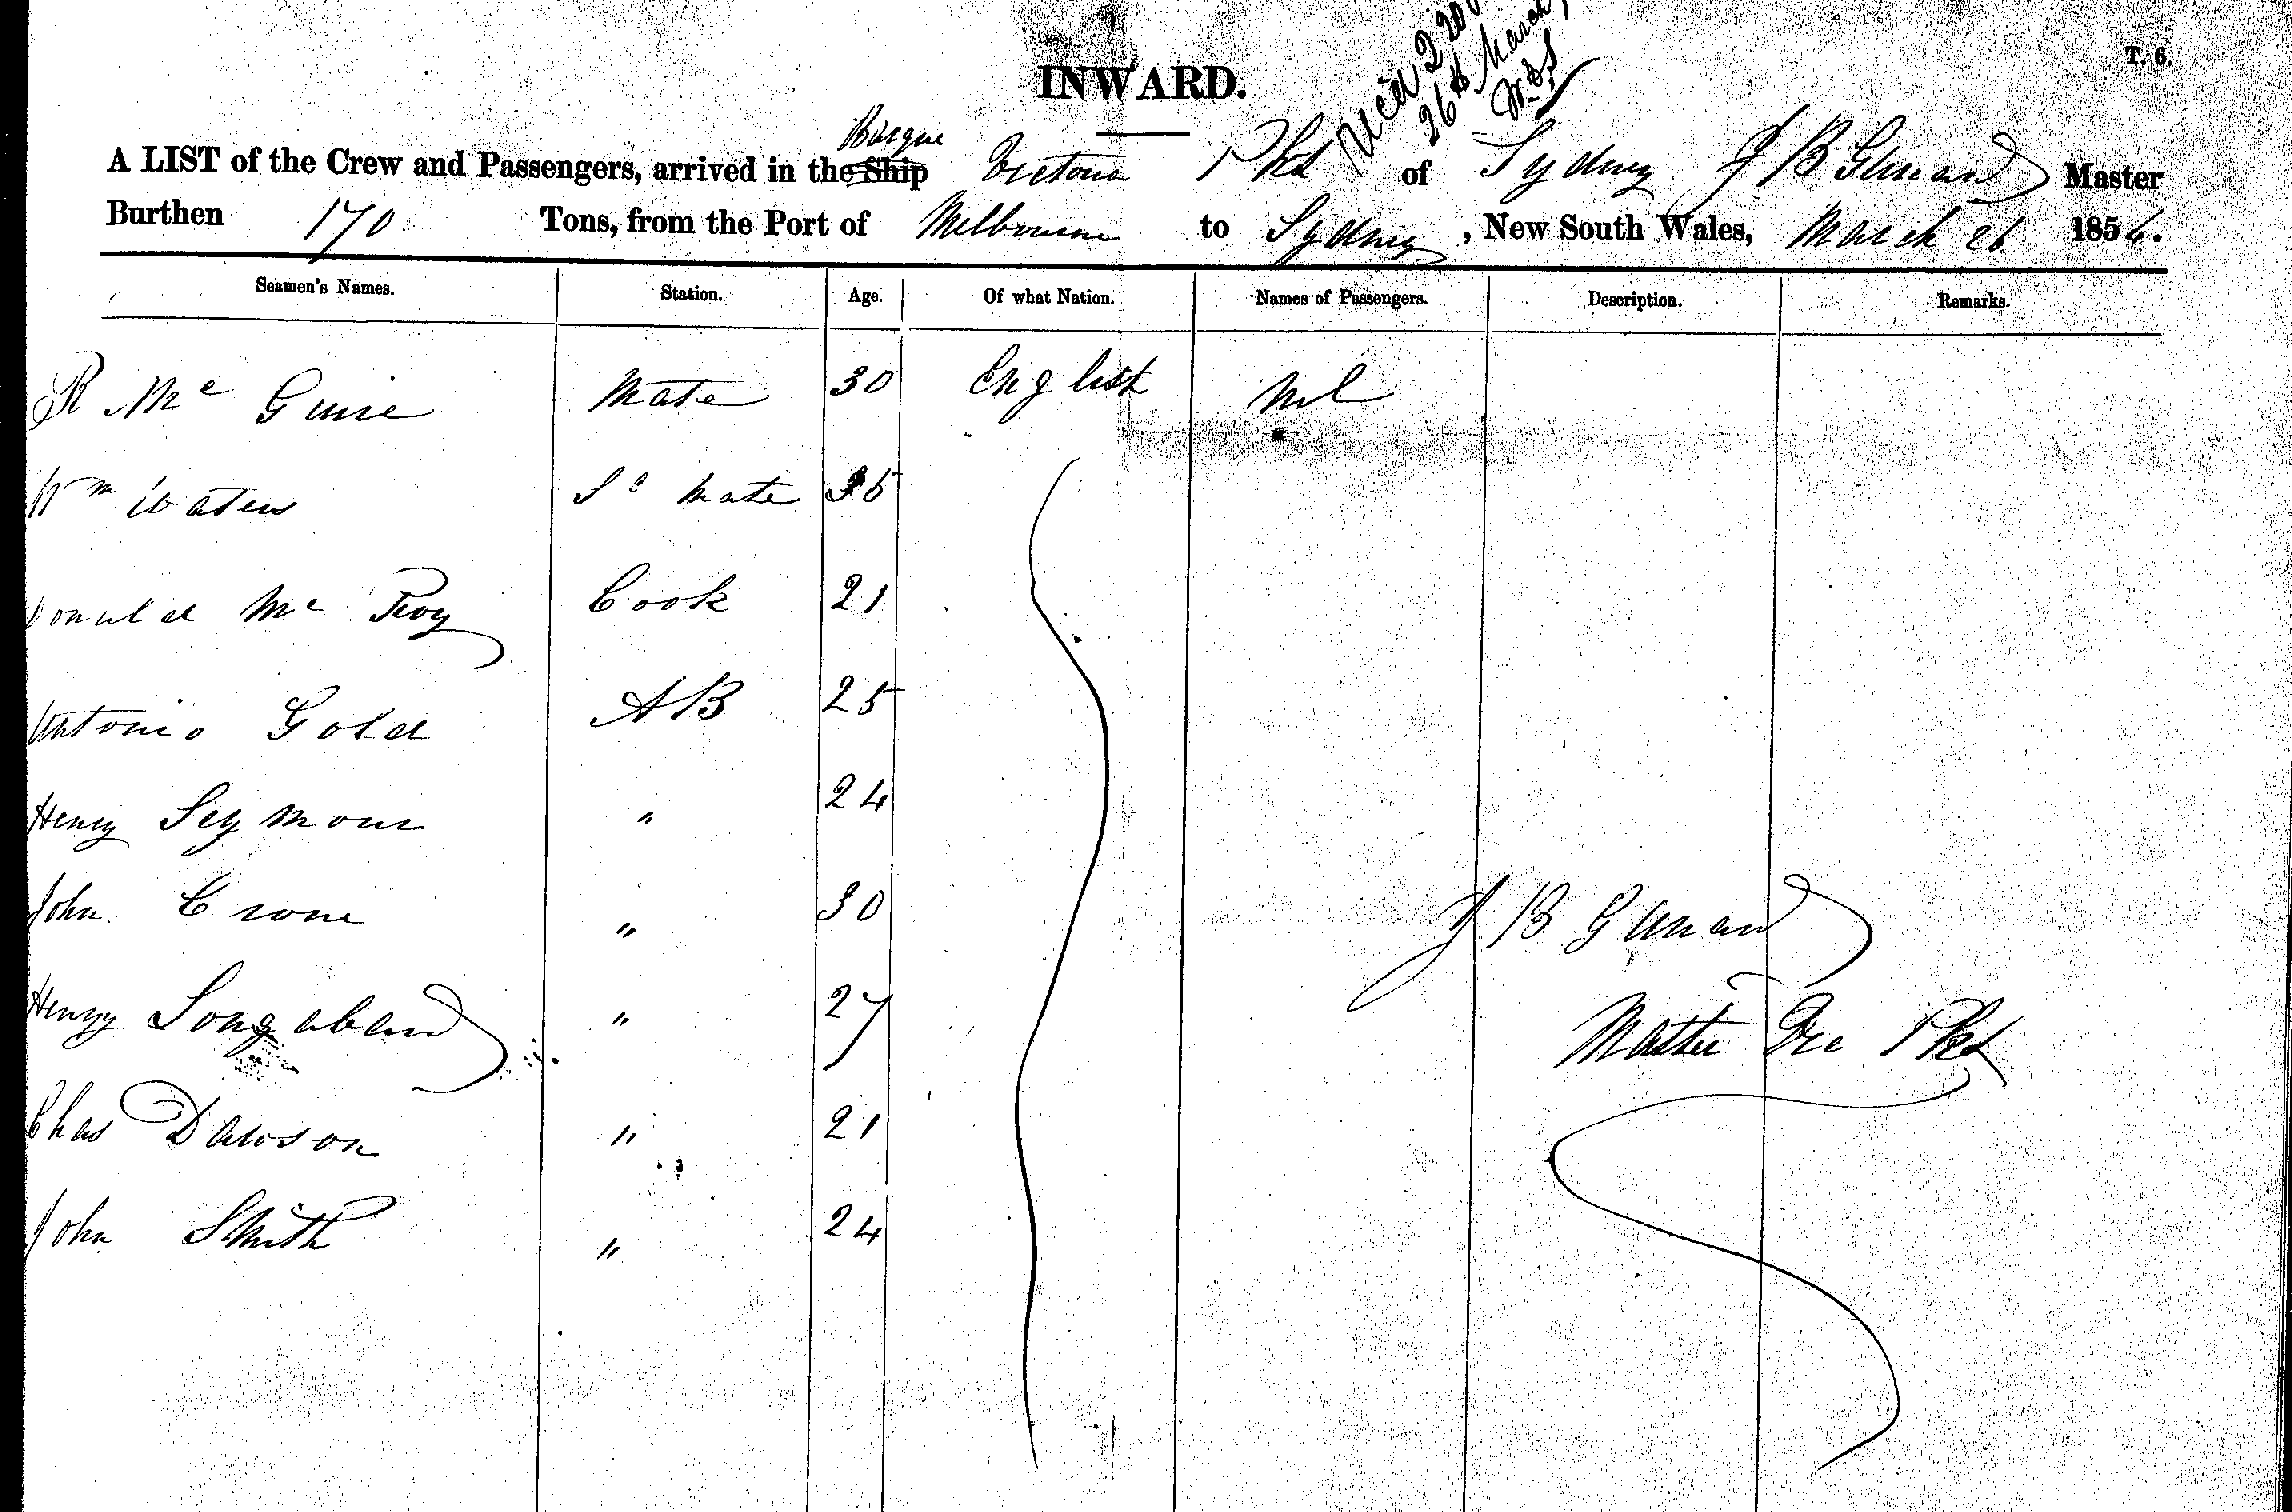 T. 6.
INWARD.
26th March
A LIST of the Crew and Passengers, arrived in the Ship Barque Victoria Pkt of Sydney J B Master
Burthen 170 Tons, from the Port of Melbourne to Sydney, New South Wales, March 26 1856.
Seamen's Names. Station. Age. Of what Nation. Names of Passengers. Description. Remarks.
R Mc Guire Mate 30 English Nil
Wm Waters Sd Mate 35
Donald Mc Roy Cook 21
Antonio Gold AB 25
Henry Seymour " 24
John Crone " 30
J B
Henry " 27
Master Vic Pkt
Chas Dawson " 21
John Smith " 24